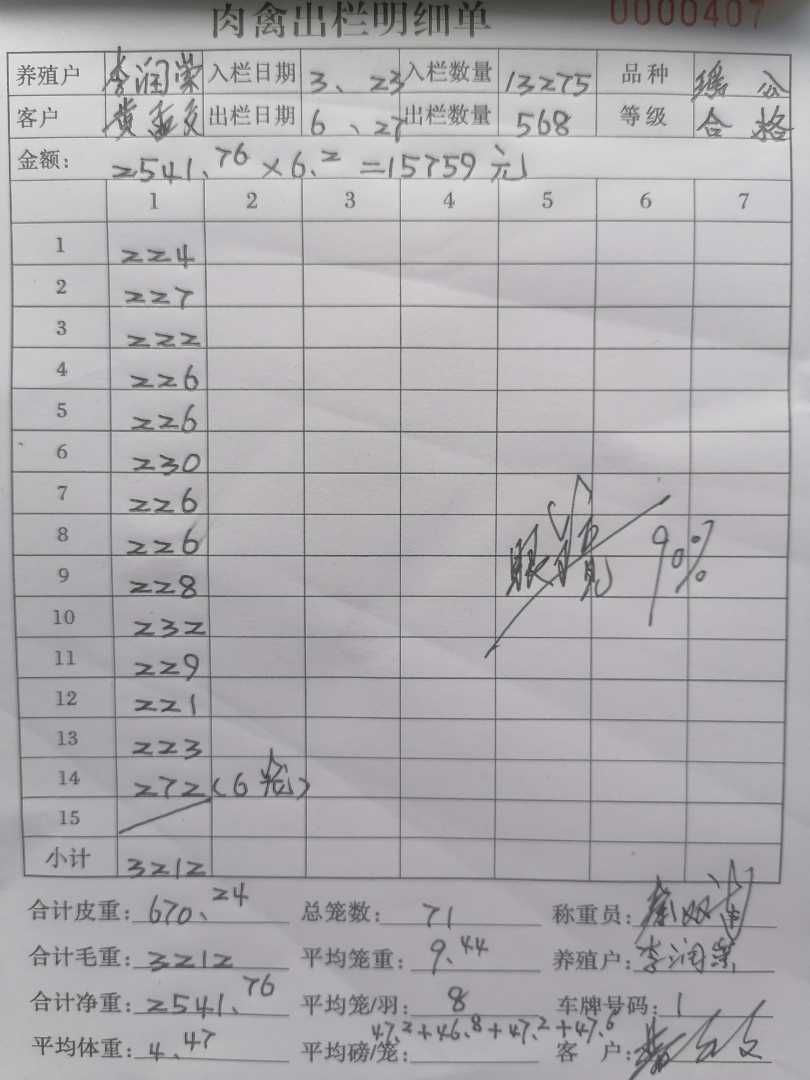 肉禽出栏明细单 0000407
养殖户 李润崇 入栏日期 3、23 入栏数量 13275 品种
客户 出栏日期 6、27 出栏数量 568 等级 合格
金额: 2541.76×6.2=15759元
1 2 3 4 5 6 7
1 224
2 227
3 222
4 226
5 226
6 230
7 226
8 226
9 228
10 232
11 229
12 221
13 223
14 272(6笼)
15
90%
小计 3212
合计皮重: 670.24 总笼数: 71 称重员:
合计毛重: 3212 平均笼重: 9.44 养殖户: 李润崇
合计净重: 2541.76 平均笼/羽: 8 车牌号码: 1
平均体重: 4.47 平均磅/笼: 47.2+46.8+47.2+47.6 客 户: